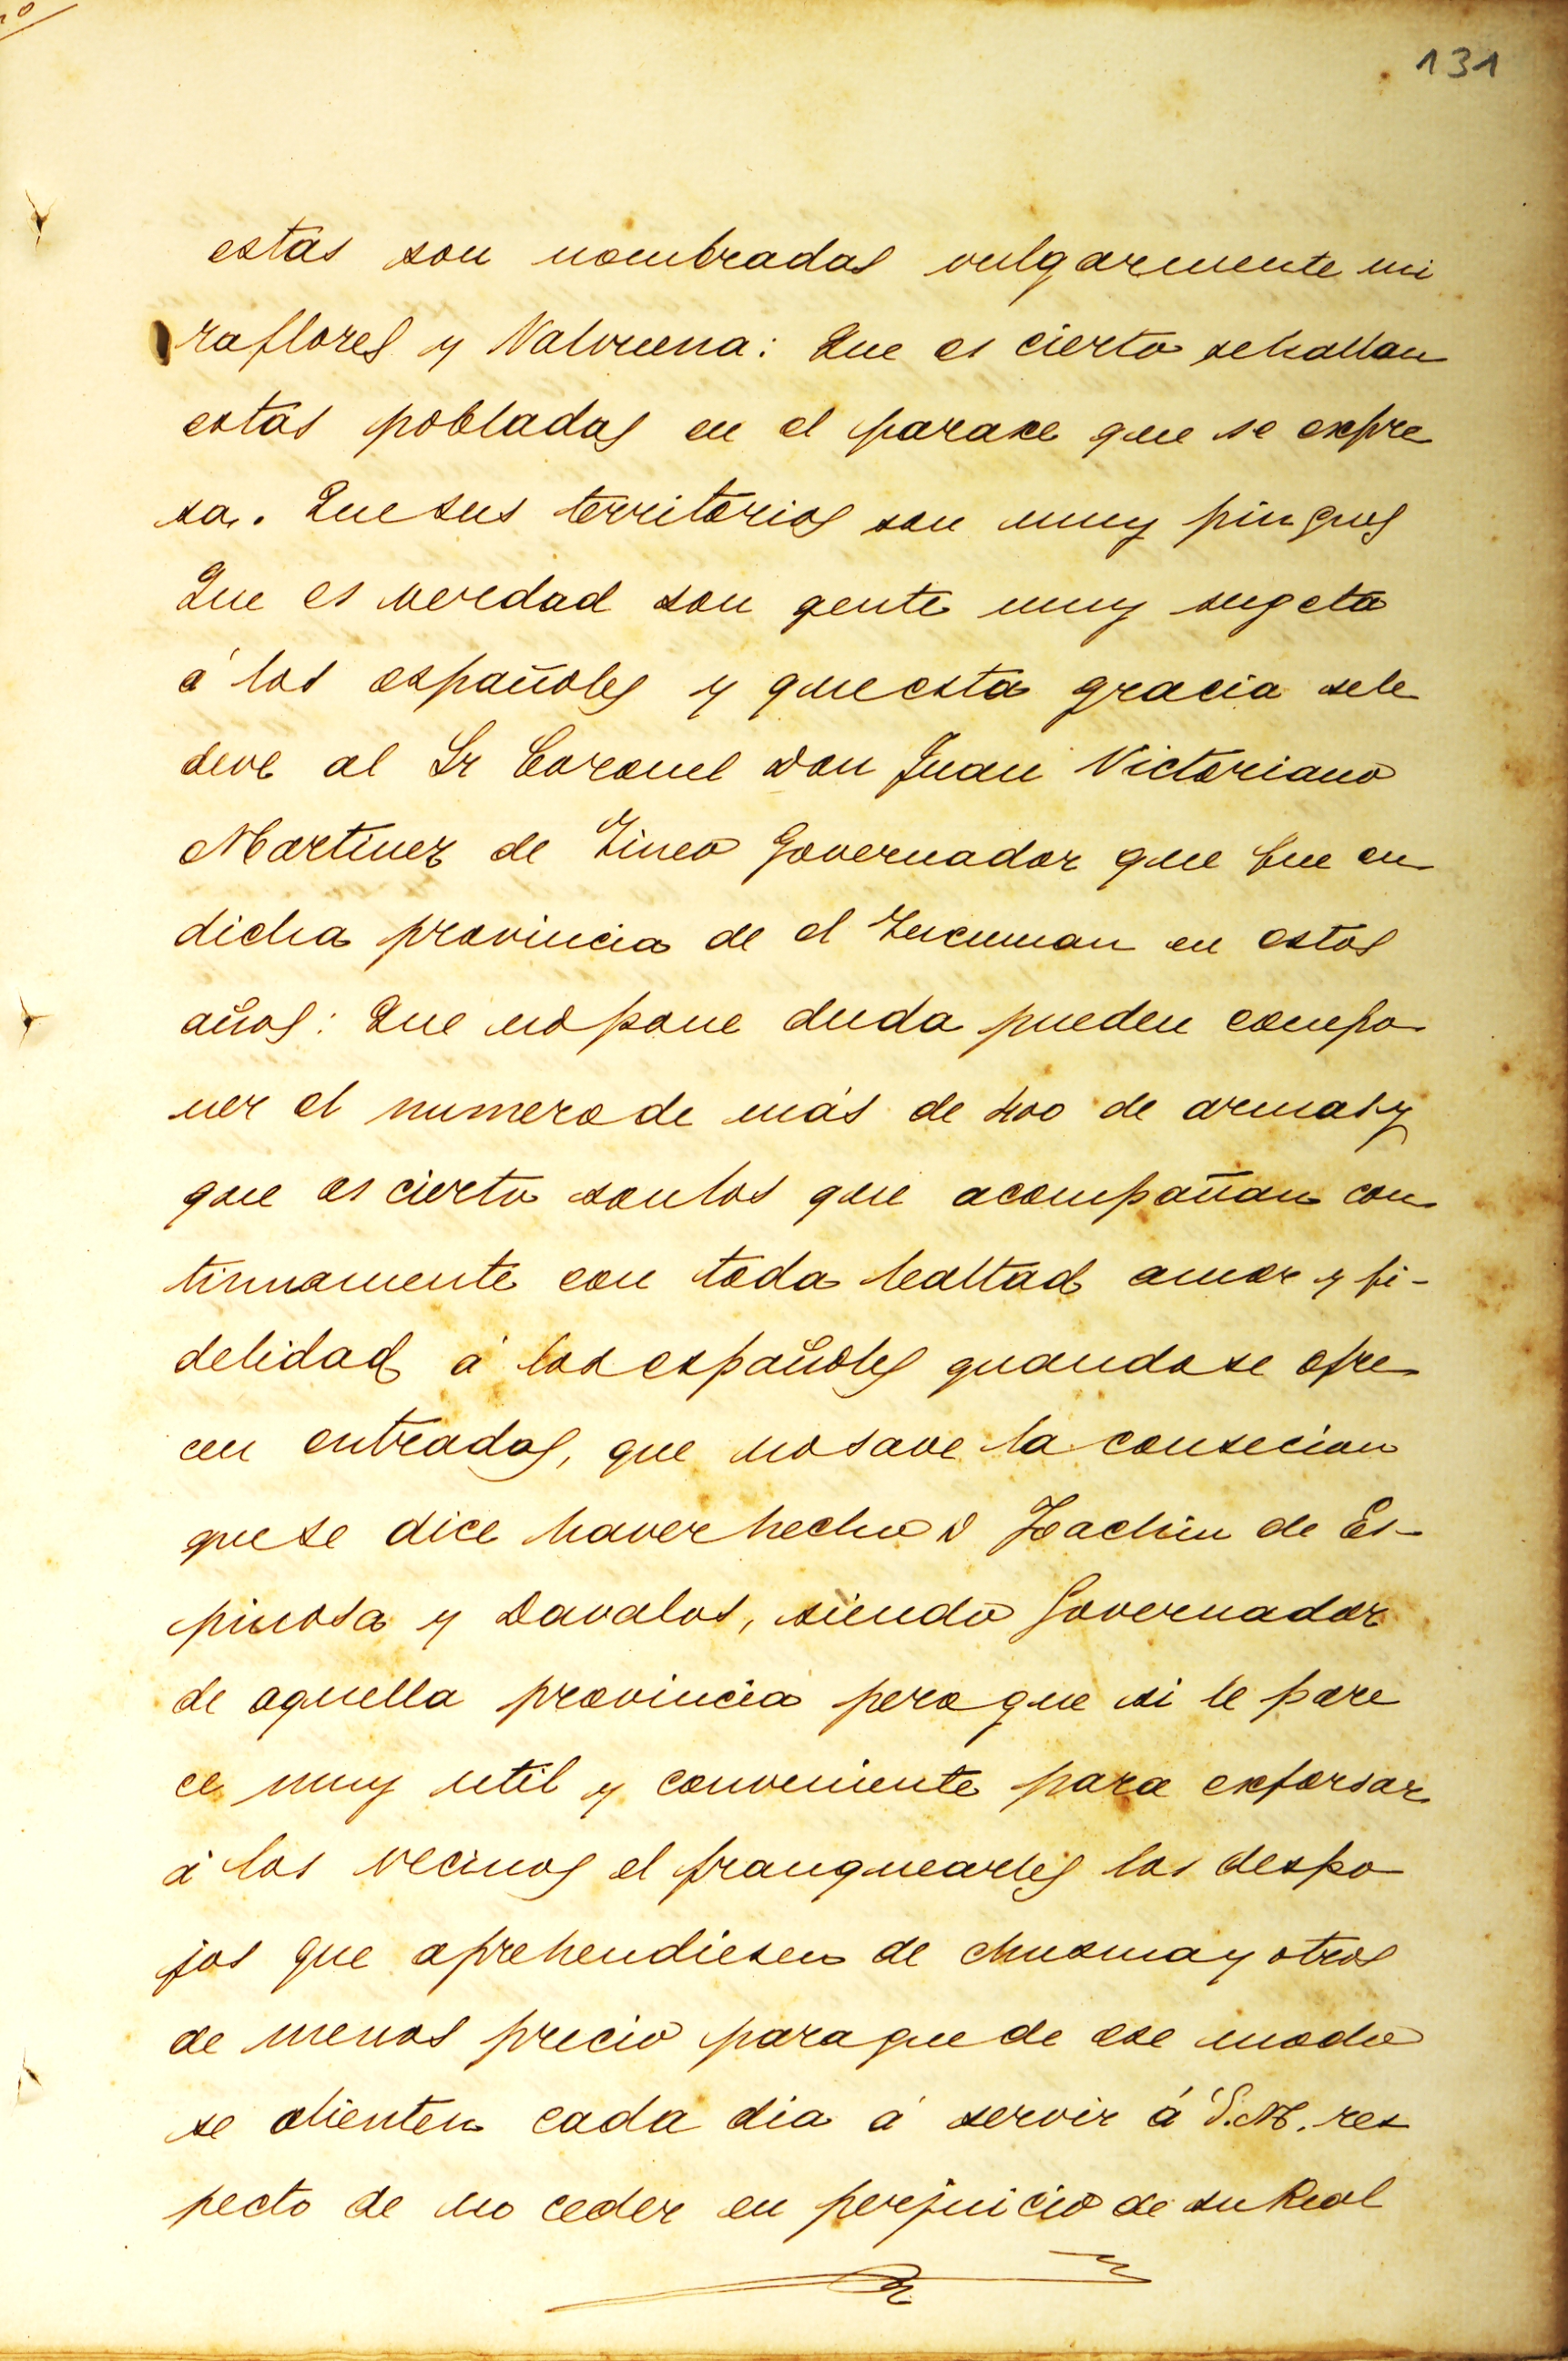 131
estas son nombradas vulgarmente mi
raflores y Valvuena: Que es cierto sehallan
estas pobladas en el paraxe que se expre
sa. Quesus territorios son muy pingues
Que es verdad son gente muy sugeta
á los españoles y questa gracia sele
deve al Sr Coronel Don Juan Victoriano
Martinez de Tineo Governador que fue en
dicha provincia de el Tucuman en estos
años: Que nopone duda pueden compo
ner el numerode más de 400 de armas y
que es cierto sonlos que acompañan con
tinuamente con toda lealtad amor y fi-
delidad á los españoles quandose ofre
cen entradas, que nosave la consecion
quese dice haverhecho D Joachin de Es-
pinosa y Davalos, siendo Governador
de aquella provincia peroque si le pare
ce muy util y conveniente para exforsar
á los vecinos el franquearles los despo
jos que aprehendiesen de chusmay otros
de menos precio paraquede ese modo
se alienten cada dia á servir á S.M. res
pecto de no ceder en perjuicio de su Real